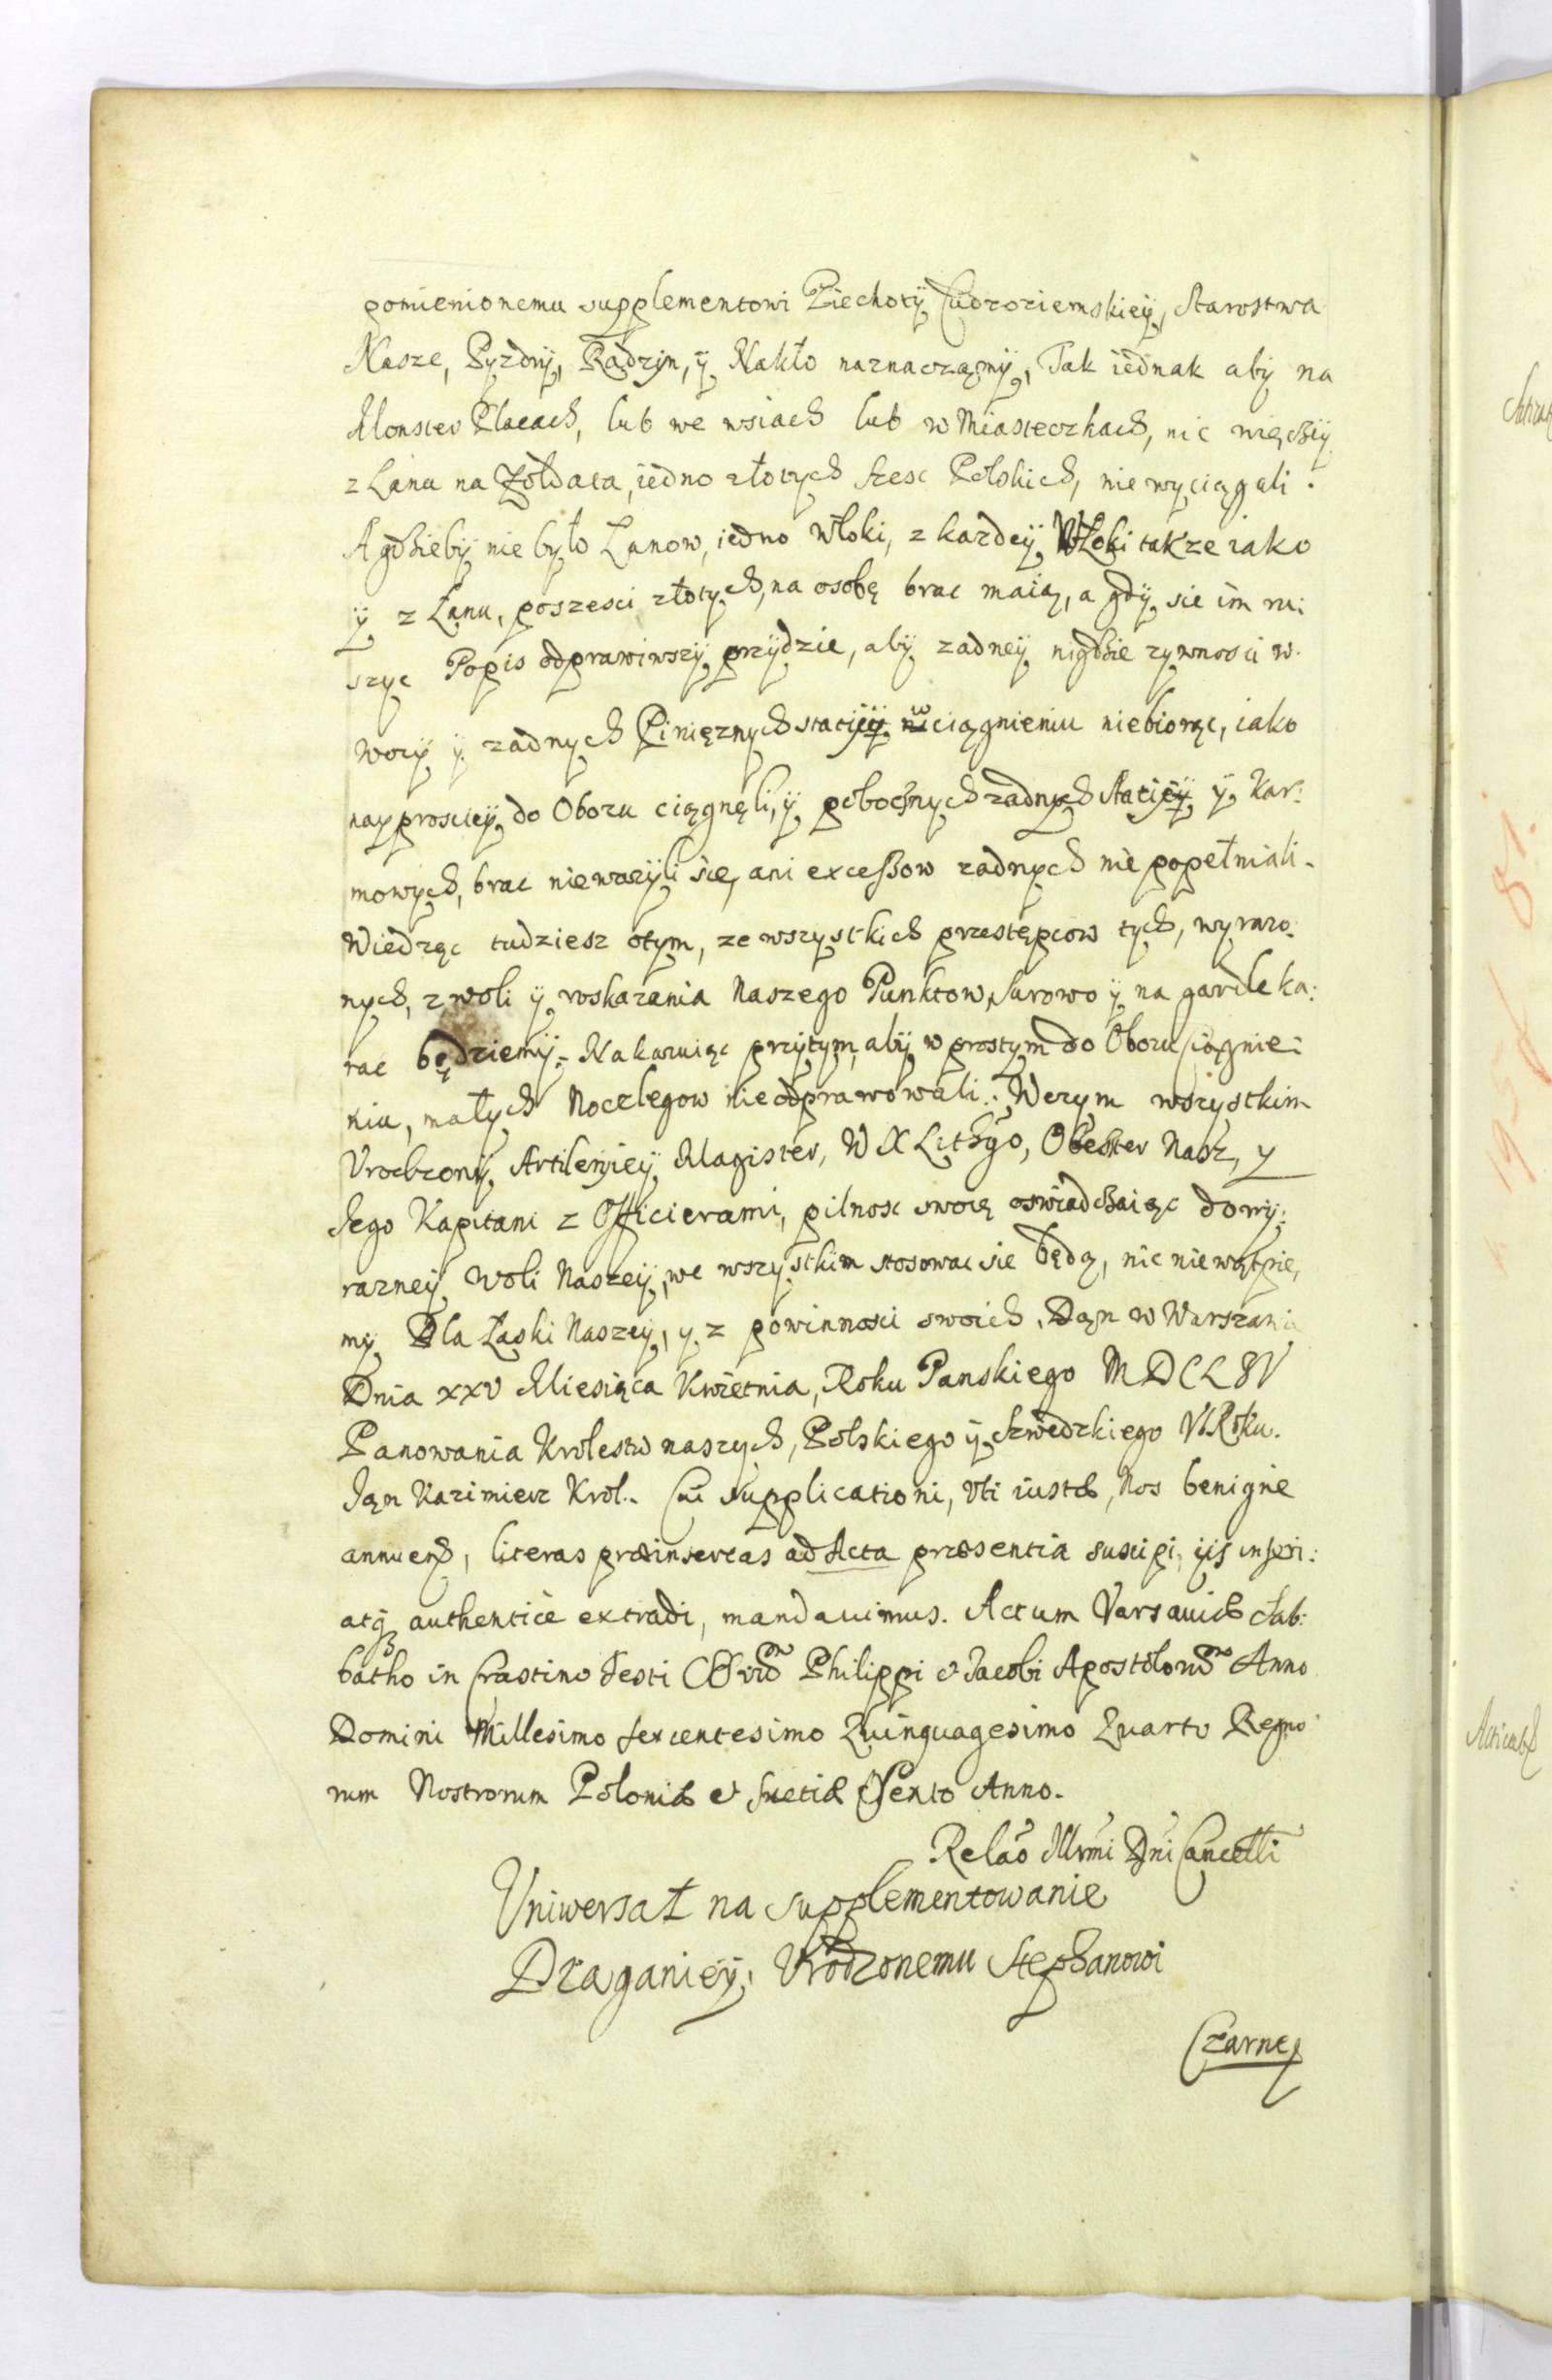 pomienionemu supplementowi Piechoty Cudzoziemskiey, Starostwa
Nasze, Pyzdry, Radzyn, y Nakło naznaczamy, Tak iednak aby na
Monster Placach, lub we wsiach lub w Miasteczkach, nic więcey
z Łanu na Zołdata, iedno złotych szesc Polskich, nie wyciągali.
A gdzieby nie było Łanow, iedno Włoki, z kazdey Włoki takze iako
y z Łanu, poszesci złotych, na osobę brac maią, a gdy sie im ru:
szyc Popis odprawiwszy przydzie, aby zadney nigdzie zywnosci w.
wozy y zadnych Pinięznych staciy w ciągnieniu niebiorąc, iako
nayprosciey do Obozu ciągnęli, y pobocznych zadnych Staciy y Kar:
mowych, brac niewazyli się, ani excessow zadnych nie popełniali.
Wiedząc tudziesz otym, ze wszystkich przestępcow tych, wyrazo:
nych, z woli y roskazania Naszego Punktow, surowo y na gardle ka:
rac będziemy. Nakazuiąc przytym, aby w prostym do Obozu ciągnie:
niu, małych Noclegow nie odprawowali. W czym wszystkim
Vrodzony Artileryiey Magister, W X Lithgo, Obester Nasz, y
Jego Kapitani z Officierami, pilnosc swoię oswiadczaiąc do wy:
razney woli Naszey, we wszystkim stosowac sie będą, nic nie wątpie,
my Dla Łaski Naszey, y z powinnosci swoich. Dan w Warszawie
Dnia XXV Miesiąca Kwietnia, Roku Panskiego MDCLIV
Panowania Krolestw naszych, Polskiego y Szwedzkiego VI Roku.
Jan Kazimierz Krol. Cui supplicationi, vti iustæ, Nos benigne
annuens, literas præinsertas ad Acta præsentia suscipi, ijs inscri:
atq authentice extradi, mandauimus. Actum Varsauiæ Sab:
batho in Crastino Festi Philippi et Jacobi Apostolorum Anno
Domini Millesimo sexcentesimo Quinquagesimo Quarto Regno
rum Nostrorum Poloniæ et Suetiæ Sexto Anno.
Relao Illrmi Dni Cancelli
Vniwersał na supplementowanie
Draganiey, Vrodzonemu Stephanowi
Czarne